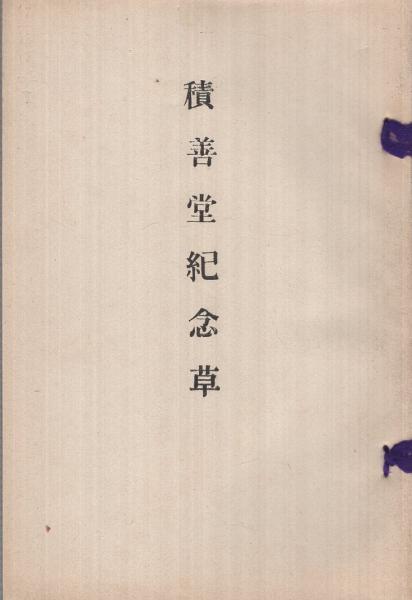 積善堂紀念草